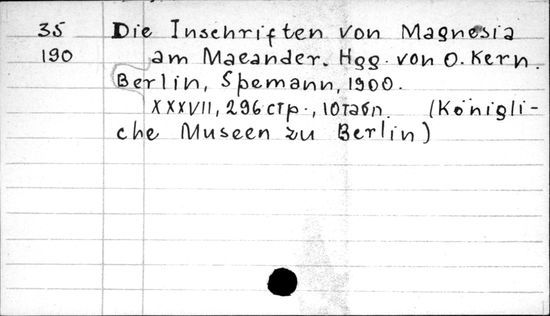 35 Die Inschriften von Magnesia
190 am Maeander. Hgg. von O. Kern.
Berlin, Spemann, 1900.
XXXVII, 296 стр., 10 табл. (Königli-
che Museen zu Berlin)